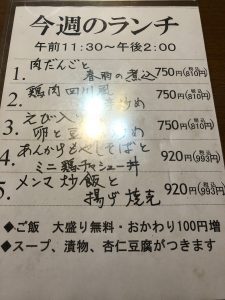 今週のランチ
午前11:30〜午後2:00
1. 肉だんごと
春雨の煮込 750円(税込810円)
2. 鶏肉四川風
炒め 750円(税込810円)
3. えび入り
卵と豆 炒め 750円(税込810円)
4. あんかけもやしそばと
ミニ鶏チャシュー丼 920円(税込993円)
5. メンマ炒飯と
揚げ焼売 920円(税込993円)
◆ご飯 大盛り無料・おかわり100円増
◆スープ、漬物、杏仁豆腐がつきます